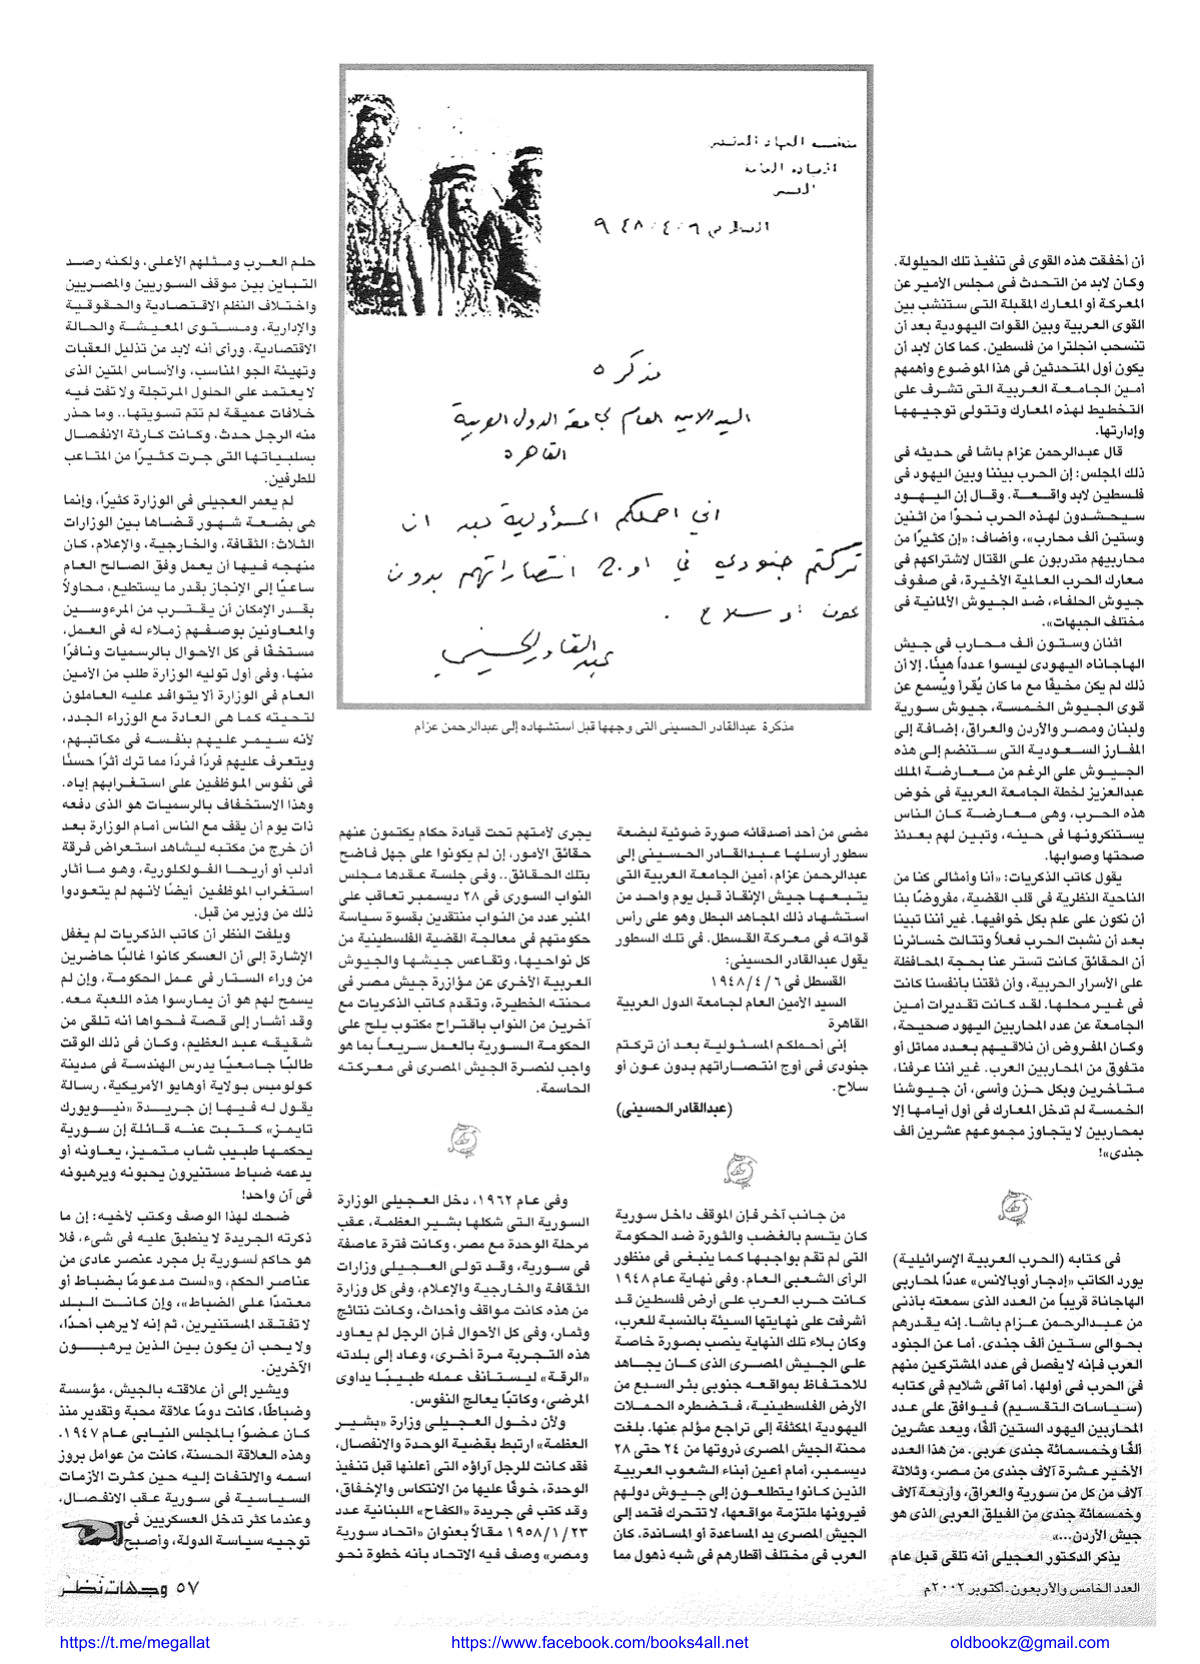 أن أخفقت هذه القوى فى تنفيذ تلك الحيلولة.
وكان لابد من التحدث فى مجلس الأمير عن
المعركة أو المعارك المقبلة التى ستنشب بين
القوى العربية وبين القوات اليهودية بعد أن
تنسحب انجلترا من فلسطين. كما كان لابد أن
يكون أول المتحدثين فى هذا الموضوع وأهمهم
أمين الجامعة العربية التى تشرف على
التخطيط لهذه المعارك وتتولى توجيهها
وإدارتها.
قال عبدالرحمن عزام باشا فى حديثه فى
ذلك المجلس: إن الحرب بيننا وبين اليهود فى
فلسطين لابد واقعة. وقال إن اليهود
سيحشدون لهذه الحرب نحوًا من اثنين
وستين ألف محارب»، وأضاف: «إن كثيرًا من
محاربيهم متدربون على القتال لاشتراكهم فى
معارك الحرب العالمية الأخيرة، فى صفوف
جيوش الحلفاء، ضد الجيوش الألمانية فى
مختلف الجبهات».
اثنان وستون ألف محارب فى جيش
الهاجاناه اليهودى ليسوا عدداً هينًا. إلا أن
ذلك لم يكن مخيفًا مع ما كان يُقرأ ويُسمع عن
قوى الجيوش الخمسة، جيوش سورية
ولبنان ومصر والأردن والعراق، إضافة إلى
المفارز السعودية التى ستنضم إلى هذه
الجيوش على الرغم من معارضة الملك
عبدالعزيز لخطة الجامعة العربية فى خوض
هذه الحرب، وهى معارضة كان الناس
يستنكرونها فى حينه، وتبين لهم بعدئذ
صحتها وصوابها.
يقول كاتب الذكريات: «أنا وأمثالى كنا من
الناحية النظرية فى قلب القضية، مفروضًا بنا
أن نكون على علم بكل خوافيها. غير أننا تبينا
بعد أن نشبت الحرب فعلاً وتتالت خسائرنا
أن الحقائق كانت تستر عنا بحجة المحافظة
على الأسرار الحربية، وأن ثقتنا بأنفسنا كانت
فى غير محلها. لقد كانت تقديرات أمين
الجامعة عن عدد المحاربين اليهود صحيحة،
وكان المفروض أن نلاقيهم بعدد مماثل أو
متفوق من المحاربين العرب. غير أننا عرفنا،
متأخرين وبكل حزن وأسى، أن جيوشنا
الخمسة لم تدخل المعارك فى أول أيامها إلا
بمحاربين لا يتجاوز مجموعهم عشرين ألف
جندى»!
فى كتابه (الحرب العربية الإسرائيلية)
يورد الكاتب «إدجار أوبالانس» عددًا لمحاربى
الهاجاناة قريباً من العدد الذى سمعته بأذنى
من عبدالرحمن عزام باشا. إنه يقدرهم
بحوالى ستين ألف جندى. أما عن الجنود
العرب فإنه لا يفصل فى عدد المشتركين منهم
فى الحرب فى أولها. أما آفى شلايم فى كتابه
(سياسات التقسيم) فيوافق على عدد
المحاربين اليهود الستين ألفًا، ويعد عشرين
ألفًا وخمسمائة جندى عربى. من هذا العدد
الأخير عشرة آلاف جندى من مصر، وثلاثة
آلاف من كل من سورية والعراق، وأربعة آلاف
وخمسمائة جندى من الفيلق العربى الذى هو
جيش الأردن...»
يذكر الدكتور العجيلى أنه تلقى قبل عام
القيادة العامة
مذكرة
السيد الامين العام لجامعة الدول العربية
القاهرة
اني احملكم المسؤولية بعد ان
تركتم جنودي في اوج انتصاراتهم بدون
عون او سلاح .
عبد القادر الحسيني
مذكرة عبدالقادر الحسينى التى وجهها قبل استشهاده إلى عبدالرحمن عزام
مضى من أحد أصدقائه صورة ضوئية لبضعة
سطور أرسلها عبدالقادر الحسينى إلى
عبدالرحمن عزام، أمين الجامعة العربية التى
يتبعها جيش الإنقاذ قبل يوم واحد من
استشهاد ذلك المجاهد البطل وهو على رأس
قواته فى معركة القسطل. فى تلك السطور
يقول عبدالقادر الحسينى:
القسطل فى ٦/ ٤/ ١٩٤٨
السيد الأمين العام لجامعة الدول العربية
القاهرة
إنى أحملكم المسئولية بعد أن تركتم
جنودى فى أوج انتصاراتهم بدون عون أو
سلاح.
(عبدالقادر الحسينى)
من جانب آخر فإن الموقف داخل سورية
كان يتسم بالغضب والثورة ضد الحكومة
التى لم تقم بواجبها كما ينبغى فى منظور
الرأى الشعبى العام. وفى نهاية عام ١٩٤٨
كانت حرب العرب على أرض فلسطين قد
أشرفت على نهايتها السيئة بالنسبة للعرب،
وكان بلاء تلك النهاية ينصب بصورة خاصة
على الجيش المصرى الذى كان يجاهد
للاحتفاظ بمواقعه جنوبى بئر السبع من
الأرض الفلسطينية، فتضطره الحملات
اليهودية المكثفة إلى تراجع مؤلم عنها. بلغت
محنة الجيش المصرى ذروتها من ٢٤ حتى ٢٨
ديسمبر، أمام أعين أبناء الشعوب العربية
الذين كانوا يتطلعون إلى جيوش دولهم
فيرونها ملتزمة مواقعها، لا تتحرك فتمد إلى
الجيش المصرى يد المساعدة أو المساندة. كان
العرب فى مختلف أقطارهم فى شبه ذهول مما
يجرى لأمتهم تحت قيادة حكام يكتمون عنهم
حقائق الأمور، إن لم يكونوا على جهل فاضح
بتلك الحقائق.. وفى جلسة عقدها مجلس
النواب السورى فى ٢٨ ديسمبر تعاقب على
المنبر عدد من النواب منتقدين بقسوة سياسة
حكومتهم فى معالجة القضية الفلسطينية من
كل نواحيها، وتقاعس جيشها والجيوش
العربية الأخرى عن مؤازرة جيش مصر فى
محنته الخطيرة، وتقدم كاتب الذكريات مع
آخرين من النواب باقتراح مكتوب يلح على
الحكومة السورية بالعمل سريعاً بما هو
واجب لنصرة الجيش المصرى فى معركته
الحاسمة.
وفى عام ١٩٦٢، دخل العجيلى الوزارة
السورية التى شكلها بشير العظمة، عقب
مرحلة الوحدة مع مصر، وكانت فترة عاصفة
فى سورية، وقد تولى العجيلى وزارات
الثقافة والخارجية والإعلام، وفى كل وزارة
من هذه كانت مواقف وأحداث، وكانت نتائج
وثمار، وفى كل الأحوال فإن الرجل لم يعاود
هذه التجربة مرة أخرى، وعاد إلى بلدته
«الرقة» ليستأنف عمله طبيبًا يداوى
المرضى، وكاتبًا يعالج النفوس.
ولأن دخول العجيلى وزارة «بشير
العظمة» ارتبط بقضية الوحدة والانفصال،
فقد كانت للرجل آراؤه التى أعلنها قبل تنفيذ
الوحدة، خوفًا عليها من الانتكاس والإخفاق،
وقد كتب فى جريدة «الكفاح» اللبنانية عدد
٢٣/ ١/ ١٩٥٨ مقالاً بعنوان «اتحاد سورية
ومصر» وصف فيه الاتحاد بأنه خطوة نحو
حلم العرب ومثلهم الأعلى، ولكنه رصد
التباين بين موقف السوريين والمصريين
واختلاف النظم الاقتصادية والحقوقية
والإدارية، ومستوى المعيشة والحالة
الاقتصادية. ورأى أنه لابد من تذليل العقبات
وتهيئة الجو المناسب، والأساس المتين الذى
لا يعتمد على الحلول المرتجلة ولا تفت فيه
خلافات عميقة لم تتم تسويتها.. وما حذر
منه الرجل حدث، وكانت كارثة الانفصال
بسلبياتها التى جرت كثيرًا من المتاعب
للطرفين.
لم يعمر العجيلى فى الوزارة كثيرًا، وإنما
هى بضعة شهور قضاها بين الوزارات
الثلاث: الثقافة، والخارجية، والإعلام، كان
منهجه فيها أن يعمل وفق الصالح العام
ساعيًا إلى الإنجاز بقدر ما يستطيع، محاولاً
بقدر الإمكان أن يقترب من المرءوسين
والمعاونين بوصفهم زملاء له فى العمل،
مستخفًا فى كل الأحوال بالرسميات ونافرًا
منها. وفى أول توليه الوزارة طلب من الأمين
العام فى الوزارة ألا يتوافد عليه العاملون
لتحيته كما هى العادة مع الوزراء الجدد،
لأنه سيمر عليهم بنفسه فى مكاتبهم،
ويتعرف عليهم فردًا فردًا مما ترك أثرًا حسنًا
فى نفوس الموظفين على استغرابهم إياه.
وهذا الاستخفاف بالرسميات هو الذى دفعه
ذات يوم أن يقف مع الناس أمام الوزارة بعد
أن خرج من مكتبه ليشاهد استعراض فرقة
أدلب أو أريحا الفولكلورية، وهو ما أثار
استغراب الموظفين أيضًا لأنهم لم يتعودوا
ذلك من وزير من قبل.
ويلفت النظر أن كاتب الذكريات لم يغفل
الإشارة إلى أن العسكر كانوا غالبًا حاضرين
من وراء الستار فى عمل الحكومة، وإن لم
يسمح لهم هو أن يمارسوا هذه اللعبة معه.
وقد أشار إلى قصة فحواها أنه تلقى من
شقيقه عبد العظيم، وكان فى ذلك الوقت
طالبًا جامعيًا يدرس الهندسة فى مدينة
كولومبس بولاية أوهايو الأمريكية، رسالة
يقول له فيها إن جريدة «نيويورك
تايمز» كتبت عنه قائلة إن سورية
يحكمها طبيب شاب متميز، يعاونه أو
يدعمه ضباط مستنيرون يحبونه ويرهبونه
فى آن واحد!
ضحك لهذا الوصف وكتب لأخيه: إن ما
ذكرته الجريدة لا ينطبق عليه فى شىء، فلا
هو حاكم لسورية بل مجرد عنصر عادى من
عناصر الحكم، و«لست مدعومًا بضباط أو
معتمدًا على الضباط»، وإن كانت البلد
لا تفتقد المستنيرين، ثم إنه لا يرهب أحدًا،
ولا يحب أن يكون بين الذين يرهبون
الآخرين.
ويشير إلى أن علاقته بالجيش، مؤسسة
وضباطًا، كانت دومًا علاقة محبة وتقدير منذ
كان عضوًا بالمجلس النيابى عام ١٩٤٧.
وهذه العلاقة الحسنة، كانت من عوامل بروز
اسمه والالتفات إليه حين كثرت الأزمات
السياسية فى سورية عقب الانفصال،
وعندما كثر تدخل العسكريين فى
توجيه سياسة الدولة، وأصبح
العدد الخامس والأربعون ـ أكتوبر ٢٠٠٢م
٥٧ وجهات نظر
https://t.me/megallat
https://www.facebook.com/books4all.net
oldbookz@gmail.com